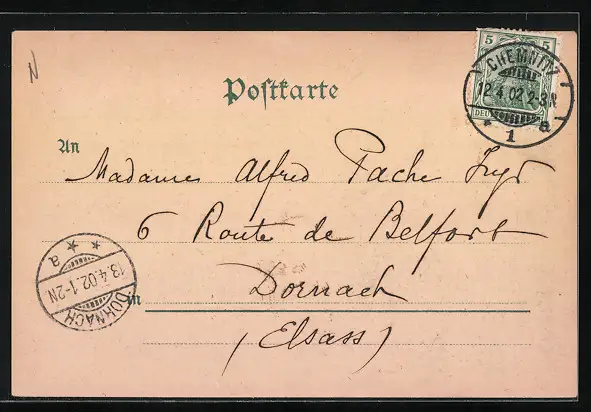 N
5 5
CHEMNITZ
12.4.02.2-3N
* 1 a
Postkarte
An
Madame Alfred Pache
6 Route de Belfort
Dornach
in
(Elsass)
a
13.4.02.1-2N
DORNACH